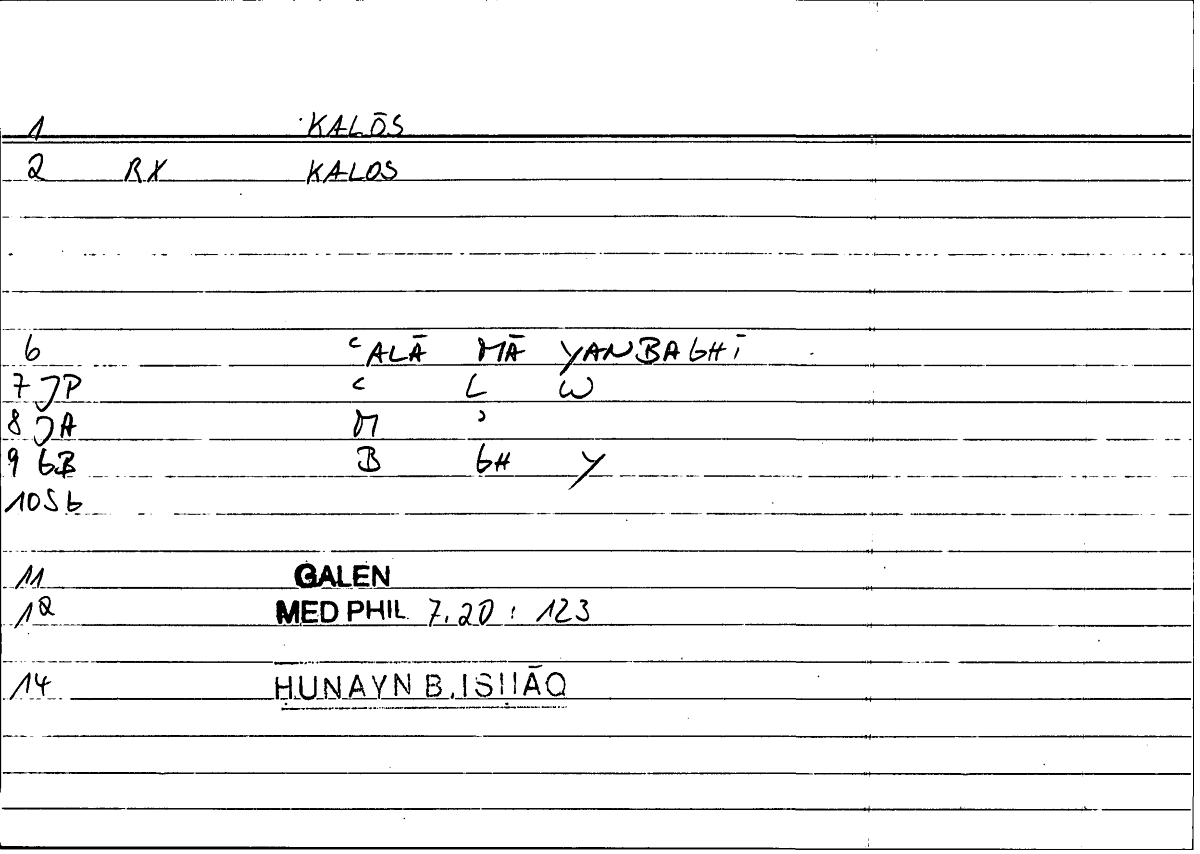 1 KALŌS
2 RX KALOS
6 ʿALĀ MĀ YANBAGHĪ
7 JP ʿ L W
8 JA M ʾ
9 GB B GH Y
10 SG
11 GALEN
12 MED PHIL 7.20 : 123
14 ḤUNAYN B. ISḤĀQ